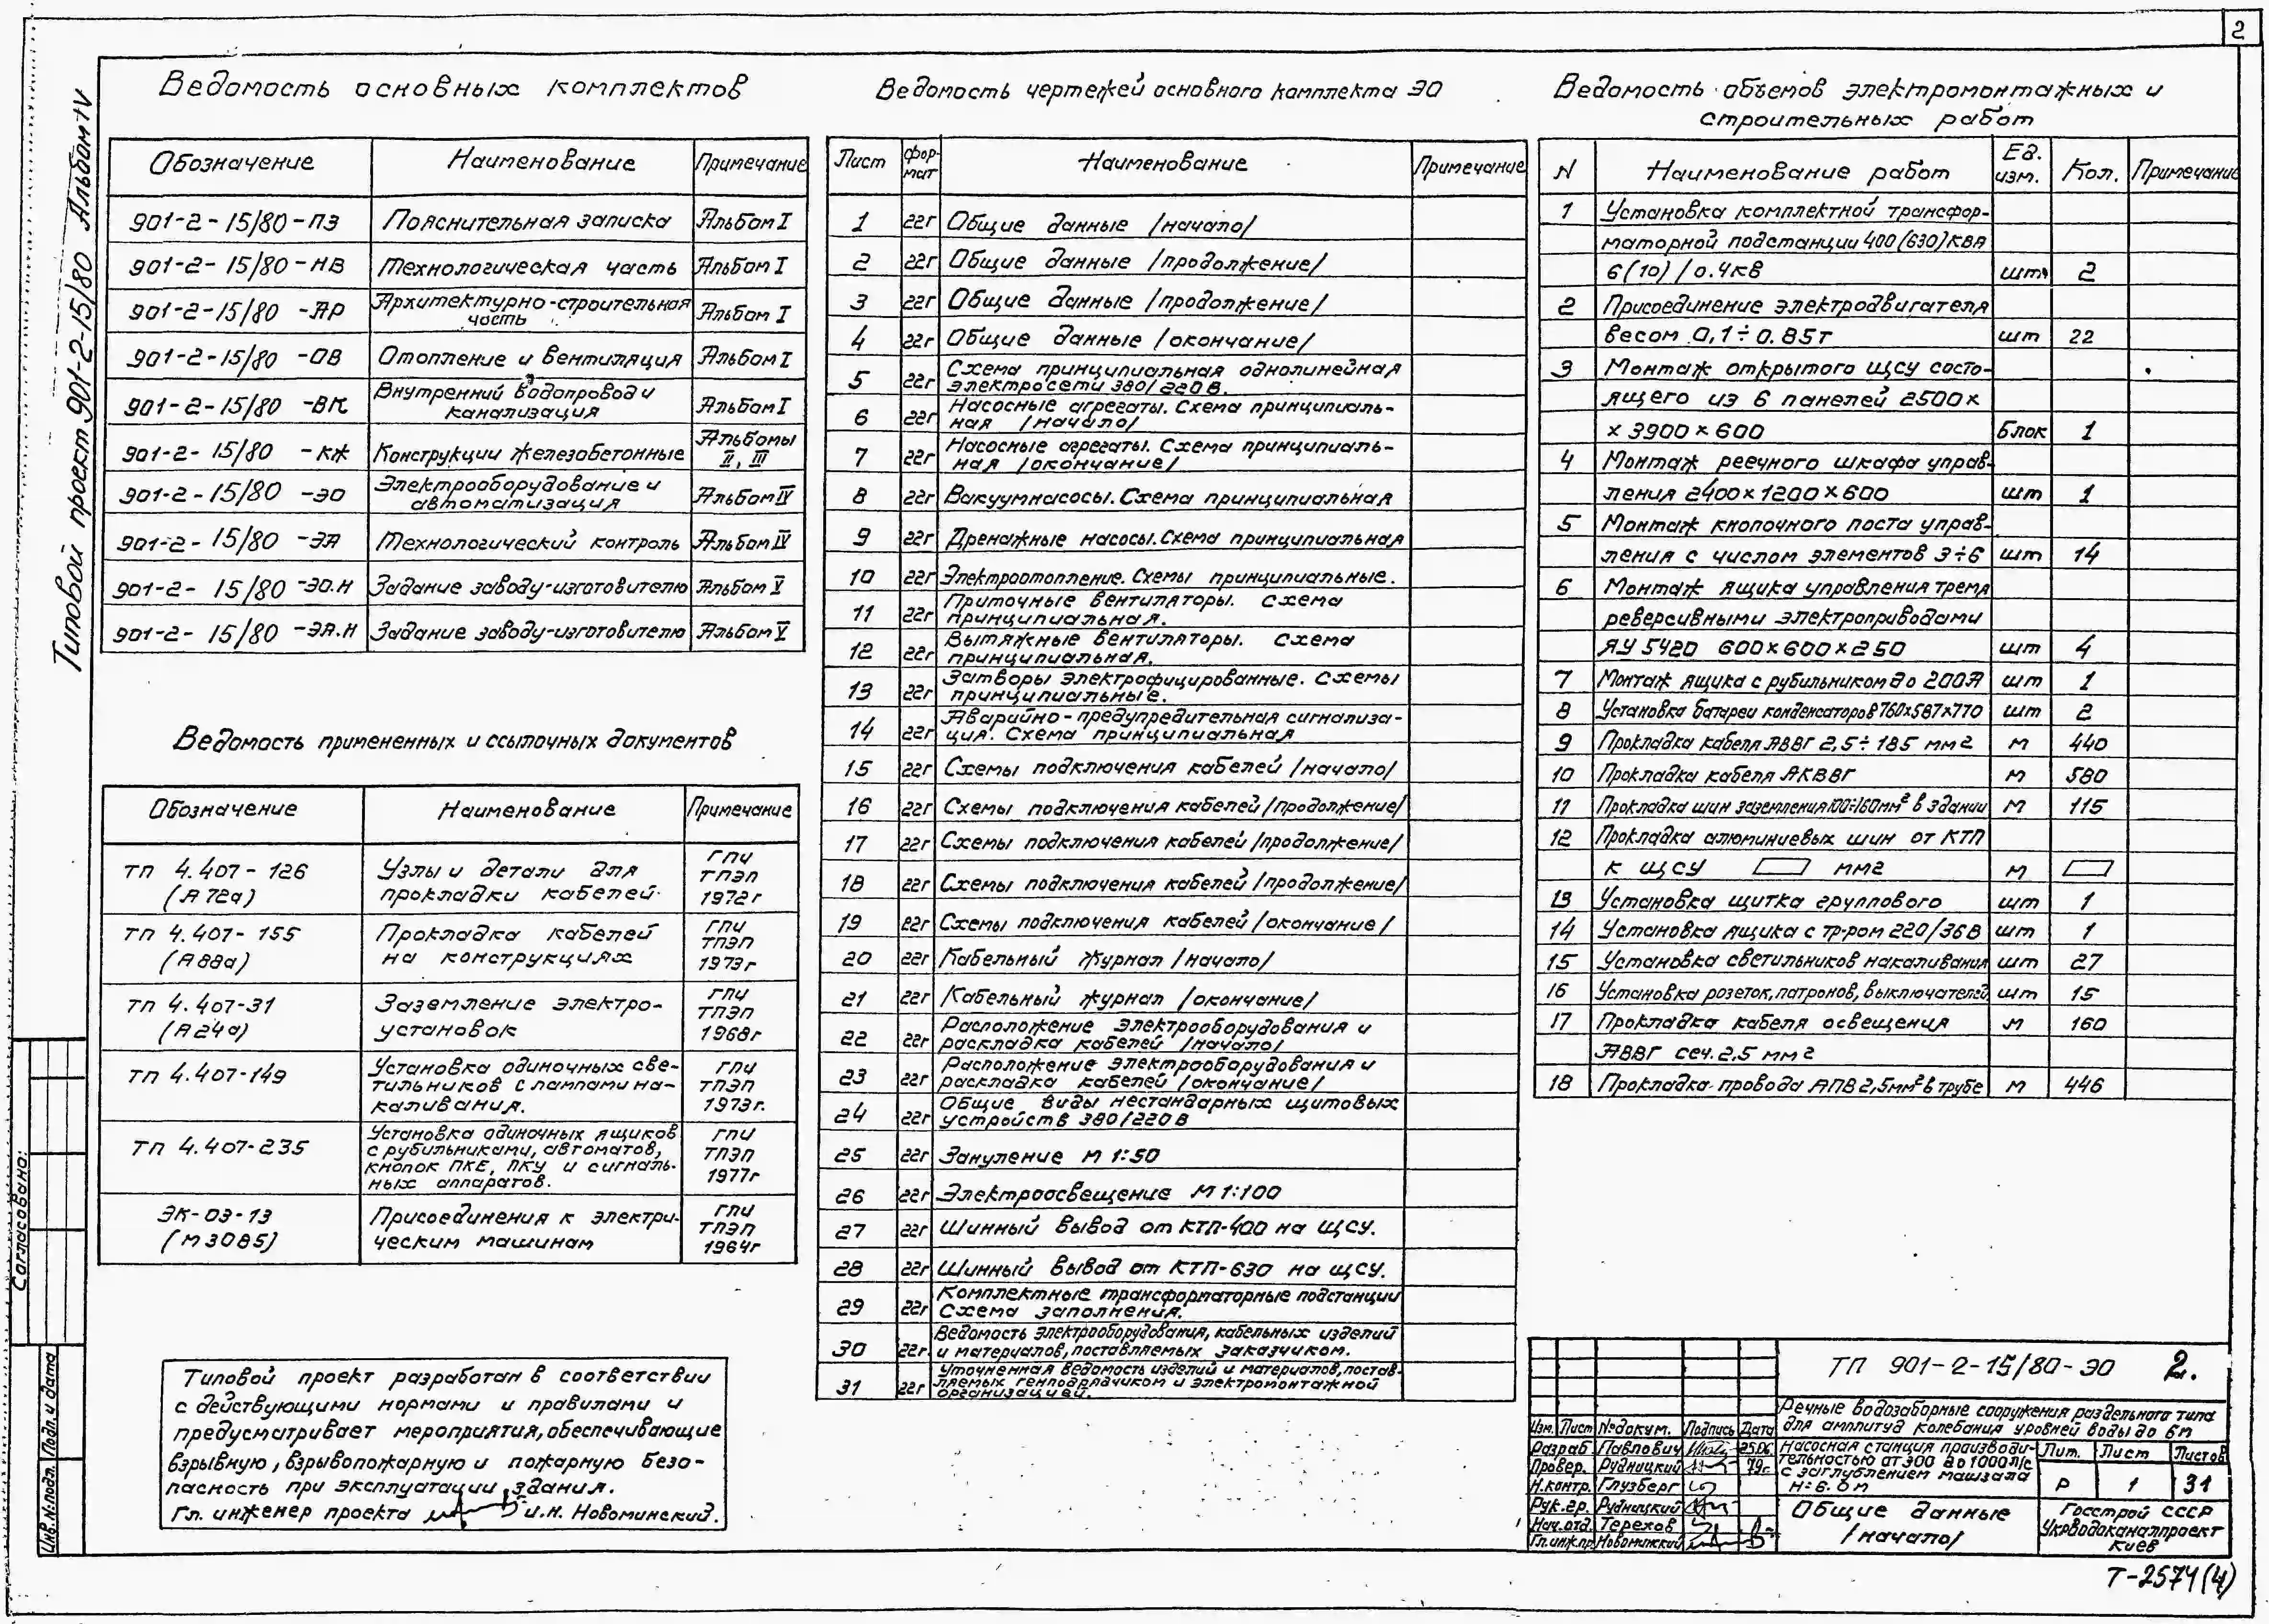 2
Типовой проект 901-2-15/80 Альбом IV
Ведомость основных комплектов
Обозначение Наименование Примечание
901-2-15/80-ПЗ Пояснительная записка Альбом I
901-2-15/80-НВ Технологическая часть Альбом I
901-2-15/80-АР Архитектурно-строительная
часть Альбом I
901-2-15/80-ОВ Отопление и вентиляция Альбом I
901-2-15/80-ВК Внутренний водопровод и
канализация Альбом I
901-2-15/80-КЖ Конструкции железобетонные Альбомы
II, III
901-2-15/80-ЭО Электрооборудование и
автоматизация Альбом IV
901-2-15/80-ЭА Технологический контроль Альбом IV
901-2-15/80-ЭО.Н Задание заводу-изготовителю Альбом V
901-2-15/80-ЭА.Н Задание заводу-изготовителю Альбом V
Ведомость примененных и ссылочных документов
Обозначение Наименование Примечание
ТП 4.407-126 Узлы и детали для ГПИ
ТПЭП
(А72а) прокладки кабелей 1972г
ТП 4.407-155 Прокладка кабелей ГПИ
ТПЭП
(А88а) на конструкциях 1973г
ТП 4.407-31 Заземление электро- ГПИ
ТПЭП
(А24а) установок 1968г
ТП 4.407-149 Установка одиночных све- ГПИ
тильников с лампами на- ТПЭП
каливания. 1973г.
ТП 4.407-235 Установка одиночных ящиков ГПИ
с рубильниками, автоматов, ТПЭП
кнопок ПКЕ, ПКУ и сигналь- 1977г
ных аппаратов.
ЭК-03-13 Присоединения к электри- ГПИ
ТПЭП
(М3085) ческим машинам 1964г
Типовой проект разработан в соответствии
с действующими нормами и правилами и
предусматривает мероприятия, обеспечивающие
взрывную, взрывопожарную и пожарную безо-
пасность при эксплуатации здания.
Гл. инженер проекта И.Н. Новоминский.
Ведомость чертежей основного комплекта ЭО
Лист Фор-
мат Наименование Примечание
1 22г Общие данные /начало/
2 22г Общие данные /продолжение/
3 22г Общие данные /продолжение/
4 22г Общие данные /окончание/
5 22г Схема принципиальная однолинейная
электросети 380/220 В.
6 22г Насосные агрегаты. Схема принципиаль-
ная /начало/
7 22г Насосные агрегаты. Схема принципиаль-
ная /окончание/
8 22г Вакуумнасосы. Схема принципиальная
9 22г Дренажные насосы. Схема принципиальная
10 22г Электроотопление. Схемы принципиальные.
11 22г Приточные вентиляторы. Схема
принципиальная.
12 22г Вытяжные вентиляторы. Схема
принципиальная.
13 22г Затворы электрофицированные. Схемы
принципиальные.
14 22г Аварийно-предупредительная сигнализа-
ция. Схема принципиальная
15 22г Схемы подключения кабелей /начало/
16 22г Схемы подключения кабелей /продолжение/
17 22г Схемы подключения кабелей /продолжение/
18 22г Схемы подключения кабелей /продолжение/
19 22г Схемы подключения кабелей /окончание/
20 22г Кабельный журнал /начало/
21 22г Кабельный журнал /окончание/
22 22г Расположение электрооборудования и
раскладка кабелей /начало/
23 22г Расположение электрооборудования и
раскладка кабелей /окончание/
24 22г Общие виды нестандарных щитовых
устройств 380/220 В
25 22г Зануление М 1:50
26 22г Электроосвещение М 1:100
27 22г Шинный вывод от КТП-400 на ЩСУ.
28 22г Шинный вывод от КТП-630 на ЩСУ.
29 22г Комплектные трансформаторные подстанции
Схема заполнения.
30 22г. Ведомость электрооборудования, кабельных изделий
и материалов, поставляемых заказчиком.
31 22г Уточненная ведомость изделий и материалов, постав-
ляемых генподрядчиком и электромонтажной
организацией.
Ведомость объемов электромонтажных и
строительных работ
N Наименование работ Ед.
изм. Кол. Примечание
1 Установка комплектной трансфор-
маторной подстанции 400(630)КВА
6(10)/0.4КВ шт. 2
2 Присоединение электродвигателя
весом 0,1÷0.85т шт 22
3 Монтаж открытого ЩСУ состо-
ящего из 6 панелей 2500х
х 3900 х 600 Блок 1
4 Монтаж реечного шкафа управ-
ления 2400х1200х600 шт 1
5 Монтаж кнопочного поста управ-
ления с числом элементов 3÷6 шт 14
6 Монтаж ящика управления тремя
реверсивными электроприводами
ЯУ 5420 600х600х250 шт 4
7 Монтаж ящика с рубильником до 200А шт 1
8 Установка батареи конденсаторов 760х587х770 шт 2
9 Прокладка кабеля АВВГ 2,5÷185 мм2 м 440
10 Прокладка кабеля АКВВГ м 580
11 Прокладка шин заземления 100÷160мм² в здании м 115
12 Прокладка алюминиевых шин от КТП
к ЩСУ мм2 м
13 Установка щитка группового шт 1
14 Установка ящика с тр-ром 220/36В шт 1
15 Установка светильников накаливания шт 27
16 Установка розеток, патронов, выключателей шт 15
17 Прокладка кабеля освещения м 160
АВВГ сеч. 2,5 мм2
18 Прокладка провода АПВ 2,5мм² в трубе м 446
ТП 901-2-15/80-ЭО 2.
Речные водозаборные сооружения раздельного типа
для амплитуд колебания уровней воды до 6м
Изм. Лист №докум. Подпись Дата
Разраб. Павлович 25.06.
Провер. Рудницкий 79г.
Н.контр. Глузберг
Рук.гр. Рудницкий
Нач.отд. Терехов
Гл.инж.пр. Новоминский
Насосная станция производи-
тельностью от 300 до 1000 л/с
с заглублением машзала
Н=6.0м
Лит. Лист Листов
Р 1 31
Общие данные
/начало/
Госстрой СССР
Укрводоканалпроект
Киев
Т-2574(4)
Согласовано:
Подп. и дата
Инв.№подл.